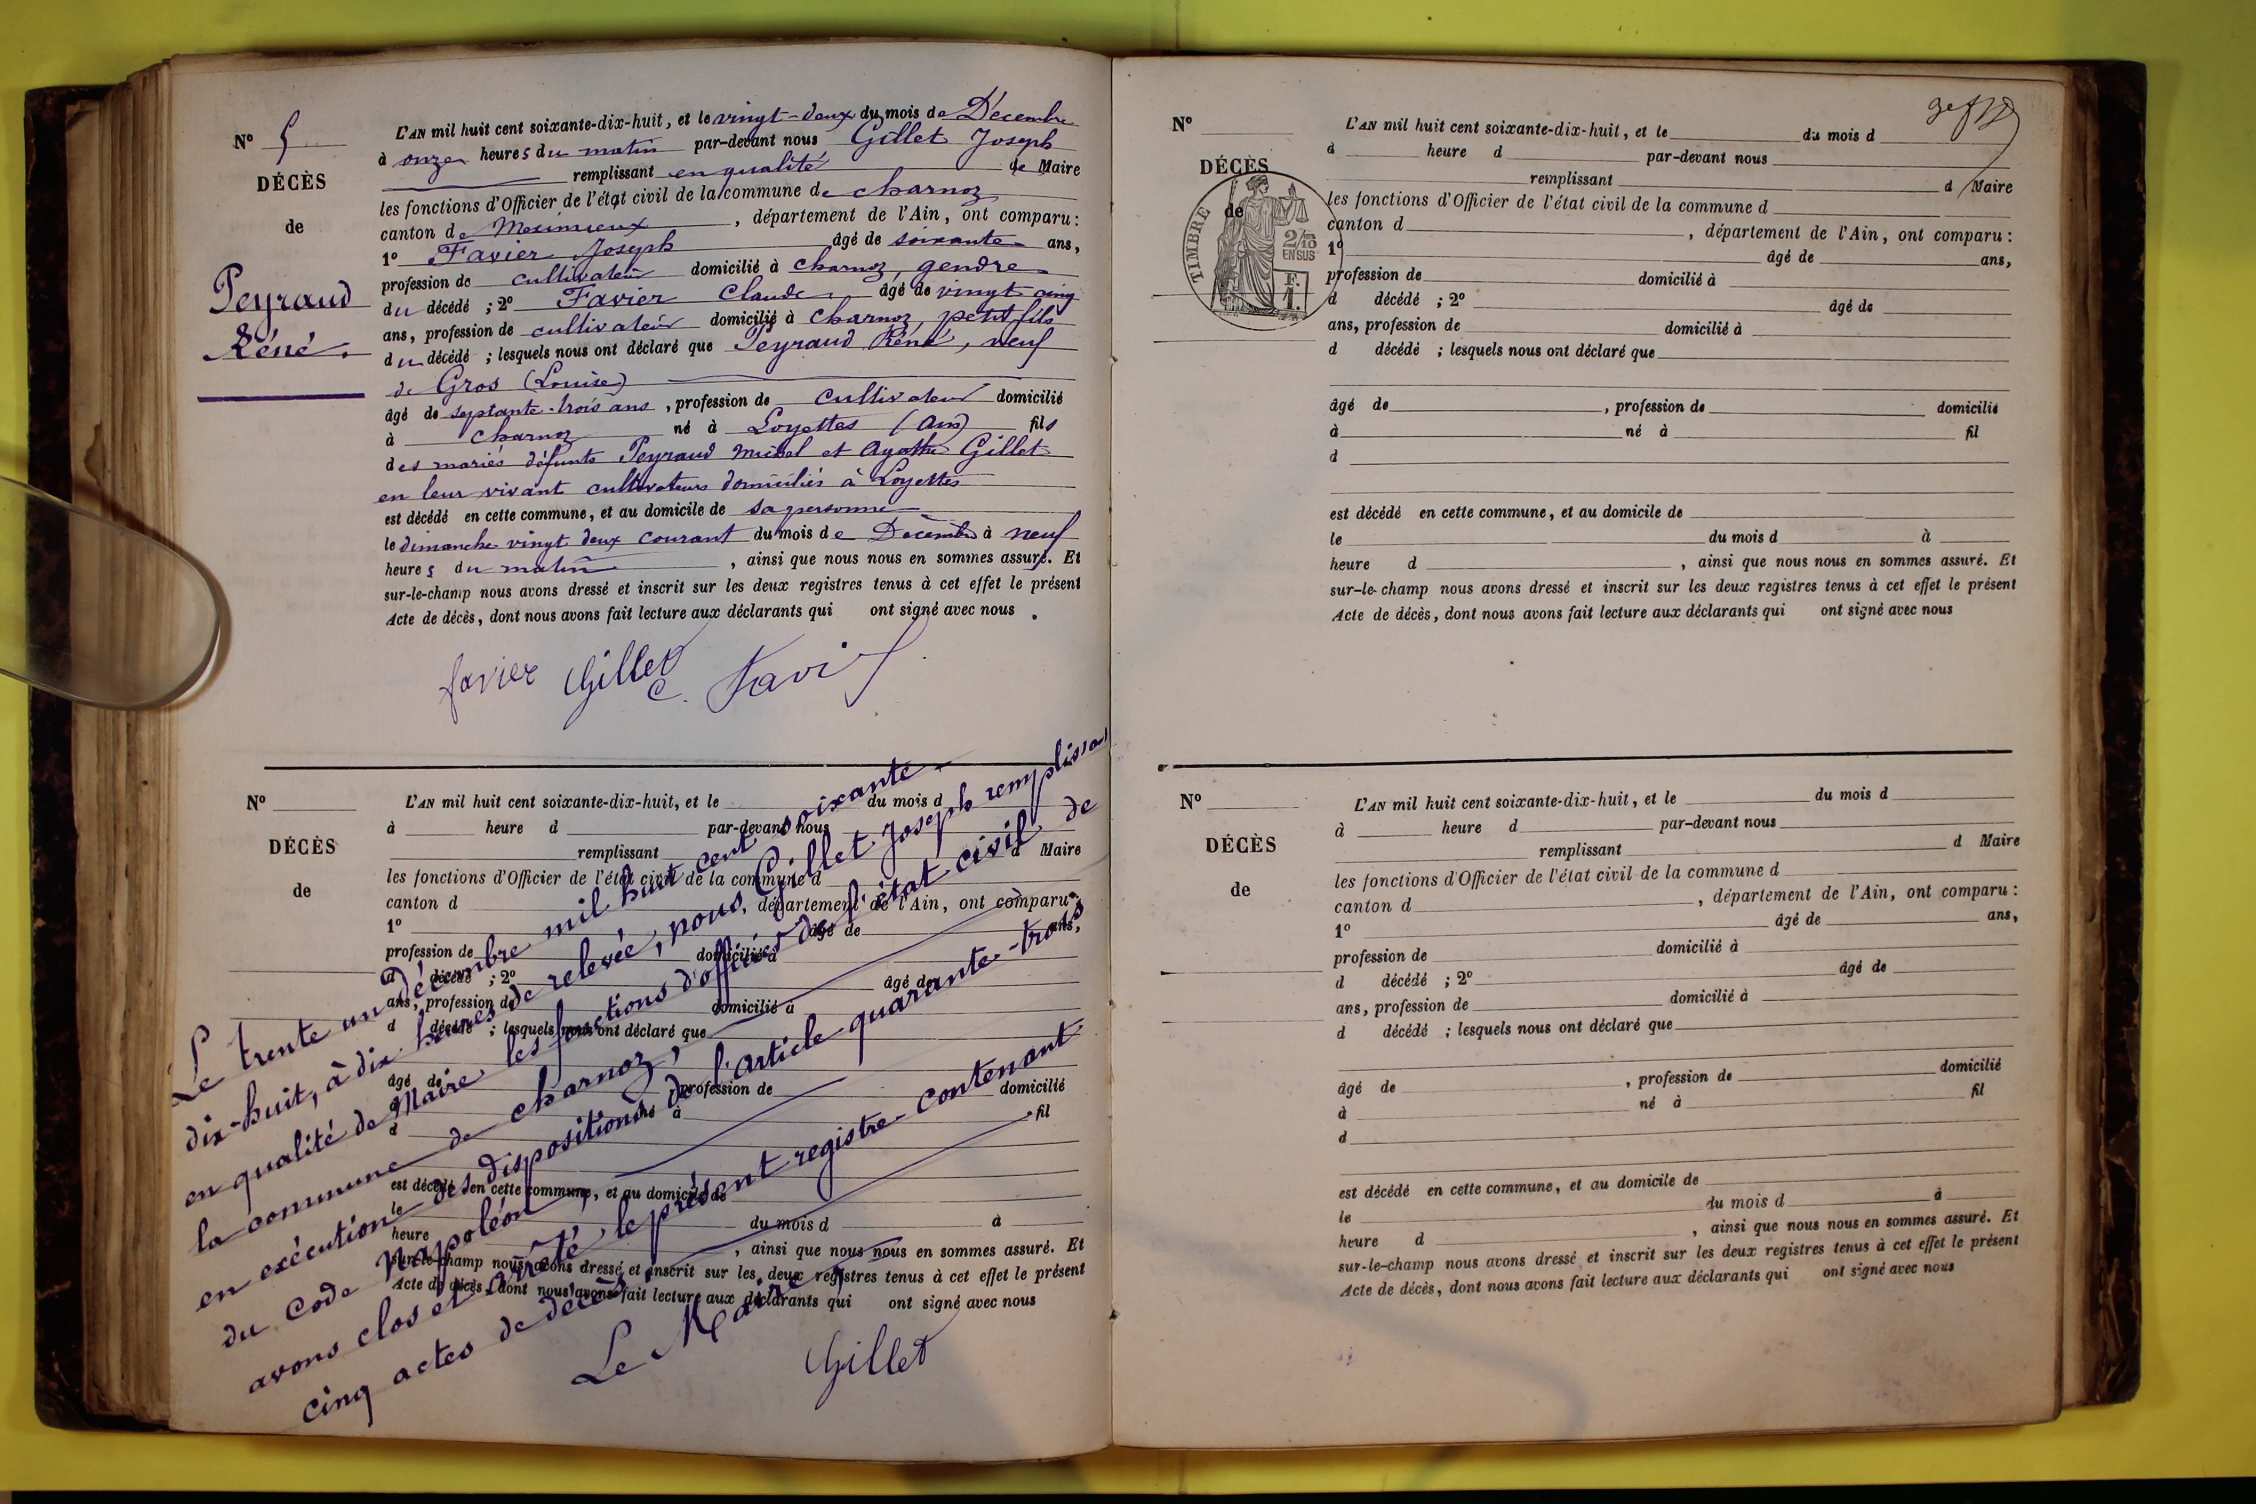 N° 5
DÉCÈS
de
Peyraud
Réné.
L'AN mil huit cent soixante-dix-huit, et le vingt-deux du mois de Décembre
à onze heures du matin par-devant nous Gillet Joseph
remplissant en qualité de Maire
les fonctions d'Officier de l'état civil de la commune de charnoz
canton de Meximieux, département de l'Ain, ont comparu :
1° Favier Joseph âgé de soixante ans,
profession de cultivateur domicilié à charnoz, gendre
du décédé ; 2° Favier Claude, âgé de vingt cinq
ans, profession de cultivateur domicilié à charnoz petit fils
du décédé ; lesquels nous ont déclaré que Peyraud Réné, veuf
de Gros (Louise)
âgé de septante-trois ans, profession de cultivateur domicilié
à charnoz né à Loyettes (Ain) fils
des mariés défunts Peyraud Michel et Agathe Gillet
en leur vivant cultivateurs domiciliés à Loyettes
est décédé en cette commune, et au domicile de sa personne
le dimanche vingt deux courant du mois de Décembre à neuf
heures du matin, ainsi que nous nous en sommes assuré. Et
sur-le-champ nous avons dressé et inscrit sur les deux registres tenus à cet effet le présent
Acte de décès, dont nous avons fait lecture aux déclarants qui ont signé avec nous.
favier Gillet C. Favier
N°
DÉCÈS
de
L'AN mil huit cent soixante-dix-huit, et le du mois d
à heure d par-devant nous
remplissant d Maire
les fonctions d'Officier de l'état civil de la commune d
canton d département de l'Ain, ont comparu :
1° âgé de ans,
profession de domicilié à
d décédé ; 2° âgé de
ans, profession de domicilié à
d décédé ; lesquels nous ont déclaré que
âgé de profession de domicilié
à né à fil
d
est décédé en cette commune, et au domicile de
le du mois d à
heure , ainsi que nous nous en sommes assuré. Et
sur-le-champ nous avons dressé et inscrit sur les deux registres tenus à cet effet le présent
Acte de décès, dont nous avons fait lecture aux déclarants qui ont signé avec nous
Le trente un décembre mil huit cent soixante
dix-huit, à dix heures de relevée, nous, Gillet Joseph remplissant
en qualité de Maire les fonctions d'officier de l'état civil de
la commune de charnoz,
en exécution des dispositions de l'article quarante-trois
du Code Napoléon,
avons clos et arrêté le présent registre contenant
cinq actes de décès.
Le Maire
Gillet
N°
DÉCÈS
de
TIMBRE
2/10
EN SUS
F.
1.
L'AN mil huit cent soixante-dix-huit, et le du mois d
à heure d par-devant nous
remplissant d Maire
les fonctions d'Officier de l'état civil de la commune d
canton d , département de l'Ain, ont comparu :
1° âgé de ans,
profession de domicilié à
d décédé ; 2° âgé de
ans, profession de domicilié à
d décédé ; lesquels nous ont déclaré que
âgé de , profession de domicilié
à né à fil
d
est décédé en cette commune, et au domicile de
le du mois d à
heure d , ainsi que nous nous en sommes assuré. Et
sur-le-champ nous avons dressé et inscrit sur les deux registres tenus à cet effet le présent
Acte de décès, dont nous avons fait lecture aux déclarants qui ont signé avec nous
N°
DÉCÈS
de
L'AN mil huit cent soixante-dix-huit, et le du mois d
à heure d par-devant nous
remplissant d Maire
les fonctions d'Officier de l'état civil de la commune d
canton d , département de l'Ain, ont comparu :
1° âgé de ans,
profession de domicilié à
d décédé ; 2° âgé de
ans, profession de domicilié à
d décédé ; lesquels nous ont déclaré que
âgé de , profession de domicilié
à né à fil
d
est décédé en cette commune, et au domicile de
le du mois d à
heure d , ainsi que nous nous en sommes assuré. Et
sur-le-champ nous avons dressé et inscrit sur les deux registres tenus à cet effet le présent
Acte de décès, dont nous avons fait lecture aux déclarants qui ont signé avec nous